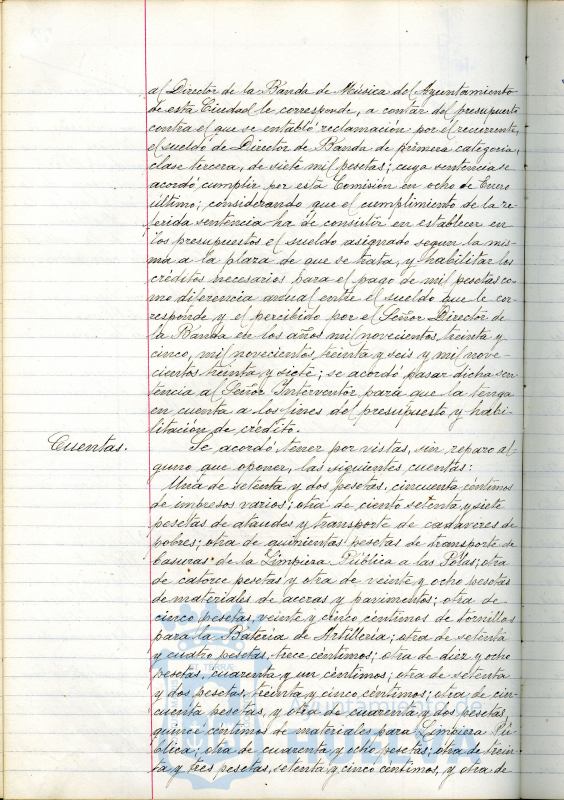 al Director de la Banda de Música del Ayuntamiento
de esta Ciudad le corresponde, a contar del presupuesto
contra el que se entabló reclamación por el recurrente,
el sueldo de Director de Banda de primera categoría,
clase tercera, de siete mil pesetas; cuya sentencia se
acordó cumplir por esta Comisión en ocho de Enero
último; considerando que el cumplimiento de la re-
ferida sentencia ha de consistir en establecer en
los presupuestos el sueldo asignado segun la mis-
ma a la plaza de que se trata, y habilitar los
créditos necesarios para el pago de mil pesetas co-
mo diferencia anual entre el sueldo que le cor-
responde y el percibido por el Señor Director de
la Banda en los años mil novecientos treinta y
cinco, mil novecientos treinta y seis y mil nove-
cientos treinta y siete; se acordó pasar dicha sen-
tencia al Señor Interventor para que la tenga
en cuenta a los fines del presupuesto y habi-
litación de crédito.
Cuentas. Se acordó tener por vistas, sin reparo al-
guno que oponer, las siguientes cuentas:
Una de setenta y dos pesetas, cincuenta céntimos
de impresos varios; otra de ciento setenta y siete
pesetas de ataudes y transporte de cadaveres de
pobres; otra de quinientas pesetas de transporte de
basuras de la Limpieza Pública a las Pólas; otra
de catorce pesetas y otra de veinte y ocho pesetas
de materiales de aceras y pavimentos; otra de
cinco pesetas, veinte y cinco céntimos de tornillos
para la Batería de Artillería; otra de setenta
y cuatro pesetas, trece céntimos; otra de diez y ocho
pesetas, cuarenta y un céntimos; otra de setenta
y dos pesetas, treinta y cinco céntimos; otra de cin-
cuenta pesetas, y otra de cuarenta y dos pesetas,
quince céntimos de materiales para Limpieza Pú-
blica; otra de cuarenta y ocho pesetas; otra de trein-
ta y tres pesetas, setenta y cinco céntimos, y otra de
Ayuntamiento de
HUELVA